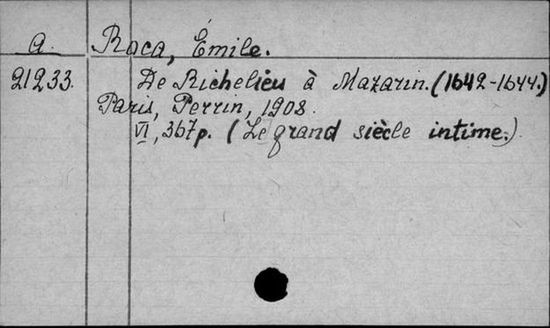 a. Roca, Émile.
21233. De Richelieu à Mazarin. (1642-1644.)
Paris, Perrin, 1908.
VI, 367p. (Le grand siècle intime.)